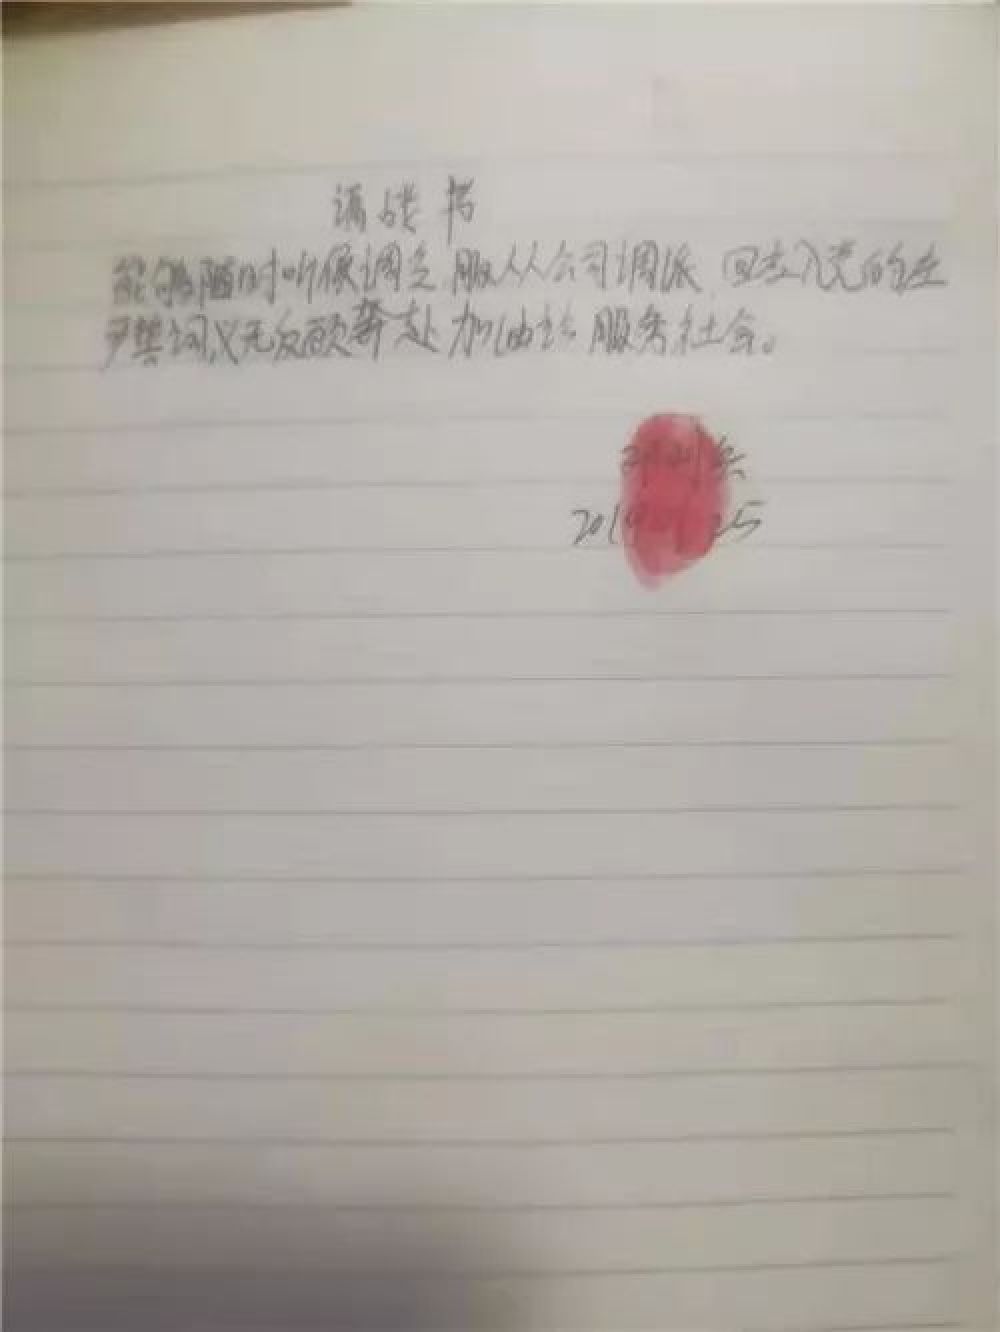 请战书
能够随时听候调之,服从从公司调派,回应入党的庄
严誓词,义无反顾奔赴加油站服务社会。
25